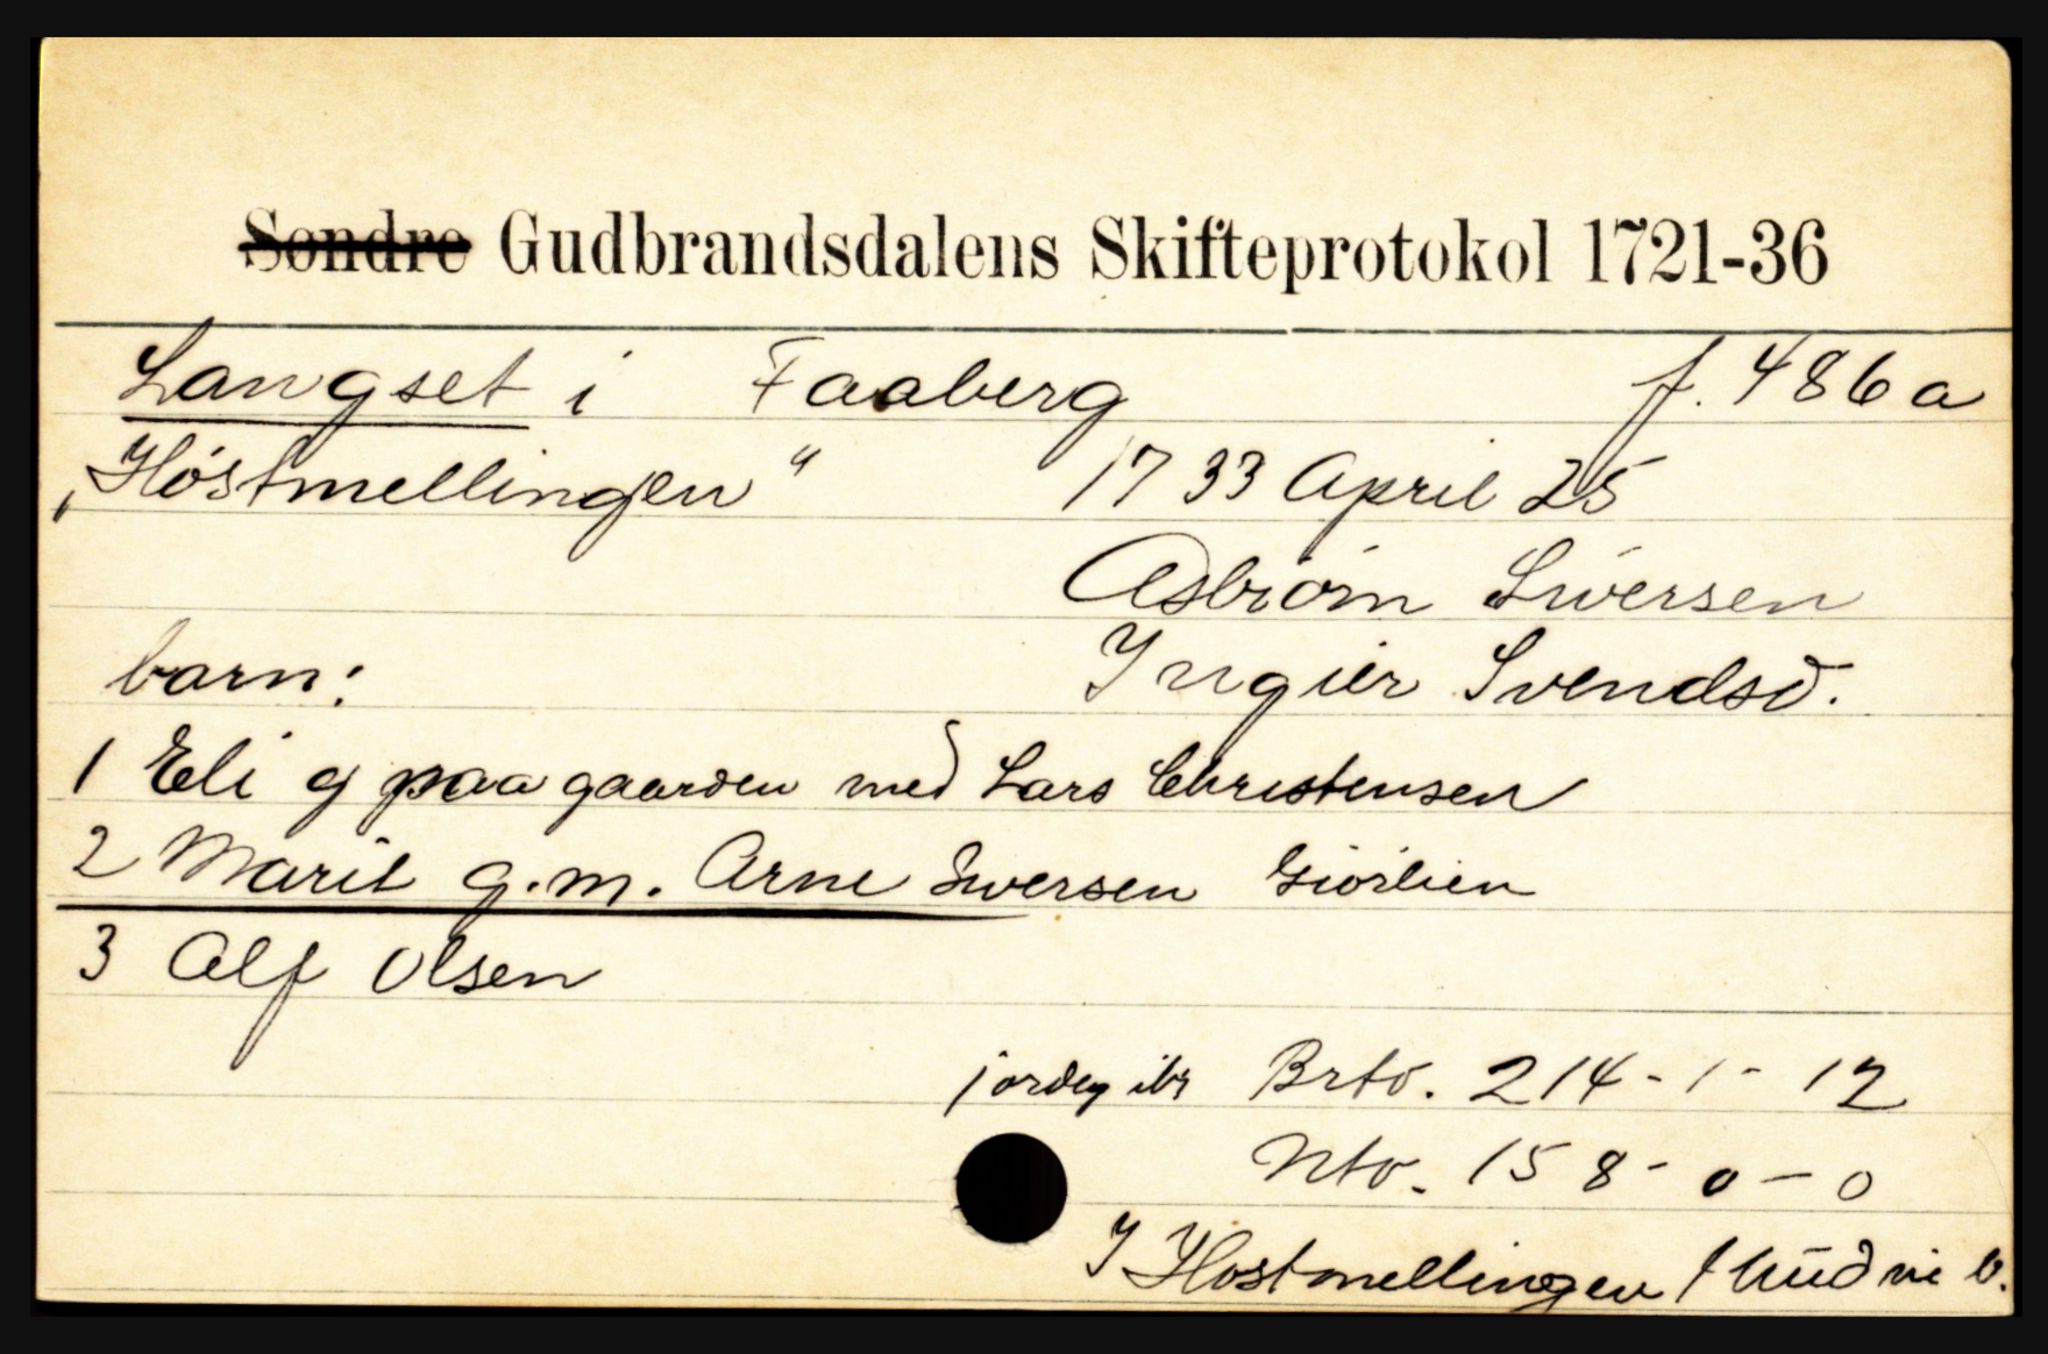 Søndre Gudbrandsdalens Skifteprotokol 1721-36
Langset i Faaberg f. 486 a
„Höstmellingen“ 1733 April 25
Asbiørn Siversen
barn: Ingier Svendsd.
1 Eli g paa gaarden med Lars Christensen
2 Marit g.m. Arne Iversen Giörlien
3 Alf Olsen
jordeg ibr Brto. 214-1-12
Nto. 158-0-0
I Hostmellingen 1 hud m b.